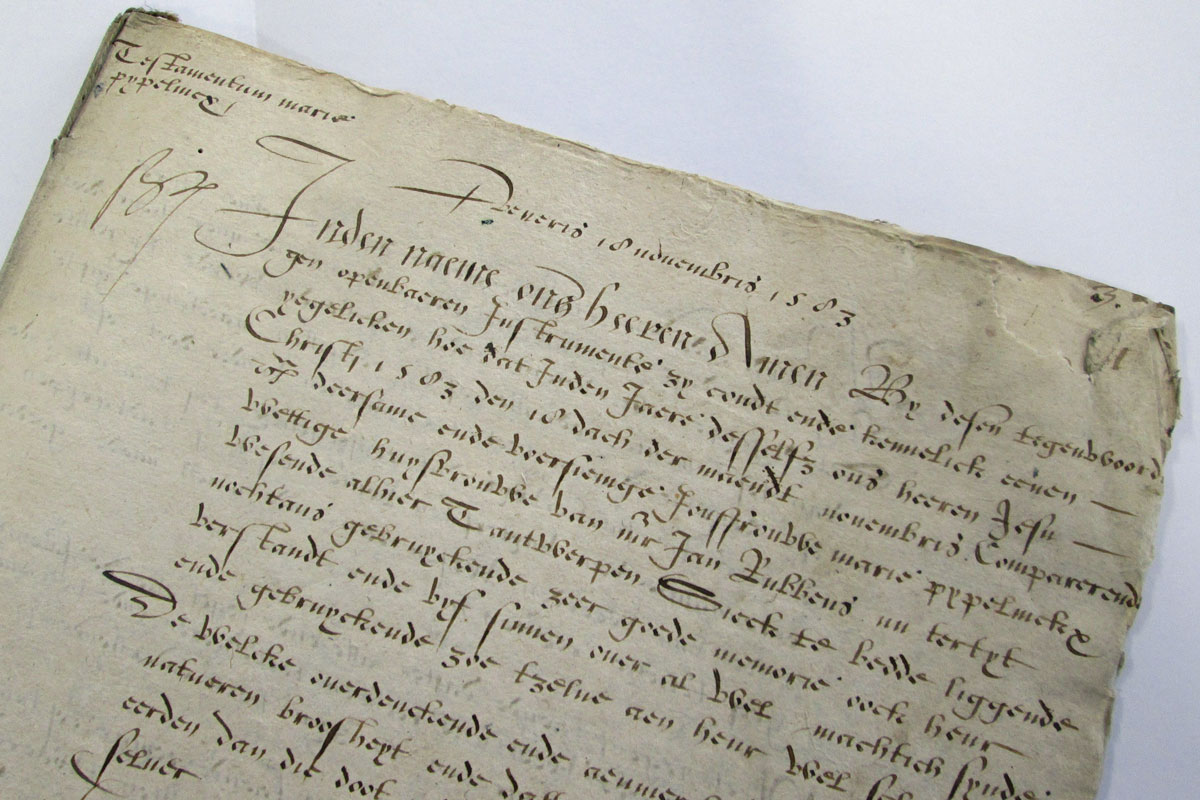 Testamentum marie
pypelincx
Veneris 18 novembris 1583
3.
Inden naeme ons heeren Amen By desen tegenwoord
gen openbaeren Instrumente zy condt ende kennelick eenen
yegelicken hoe dat Inden Jaere desselfs ons heeren Jesu
Christi 1583 den 18 dach der maendt novembris Comparerende
deersame ende voersienige Jouffrouwe marie pypelinckx
wettige huysfrouwe van mr Jan Rubbens nu tertyt
wesende alhier Tantwerpen Sieck te bedde liggende
nochtans gebruyckende zeer goede memorie oock heur
verstandt ende vyf sinnen over al wel machtich synde
ende gebruyckende zoe tzelve aen heur wel
De welcke overdenckende ende
natueren broosheyt ende
eerden dan die doot
selver